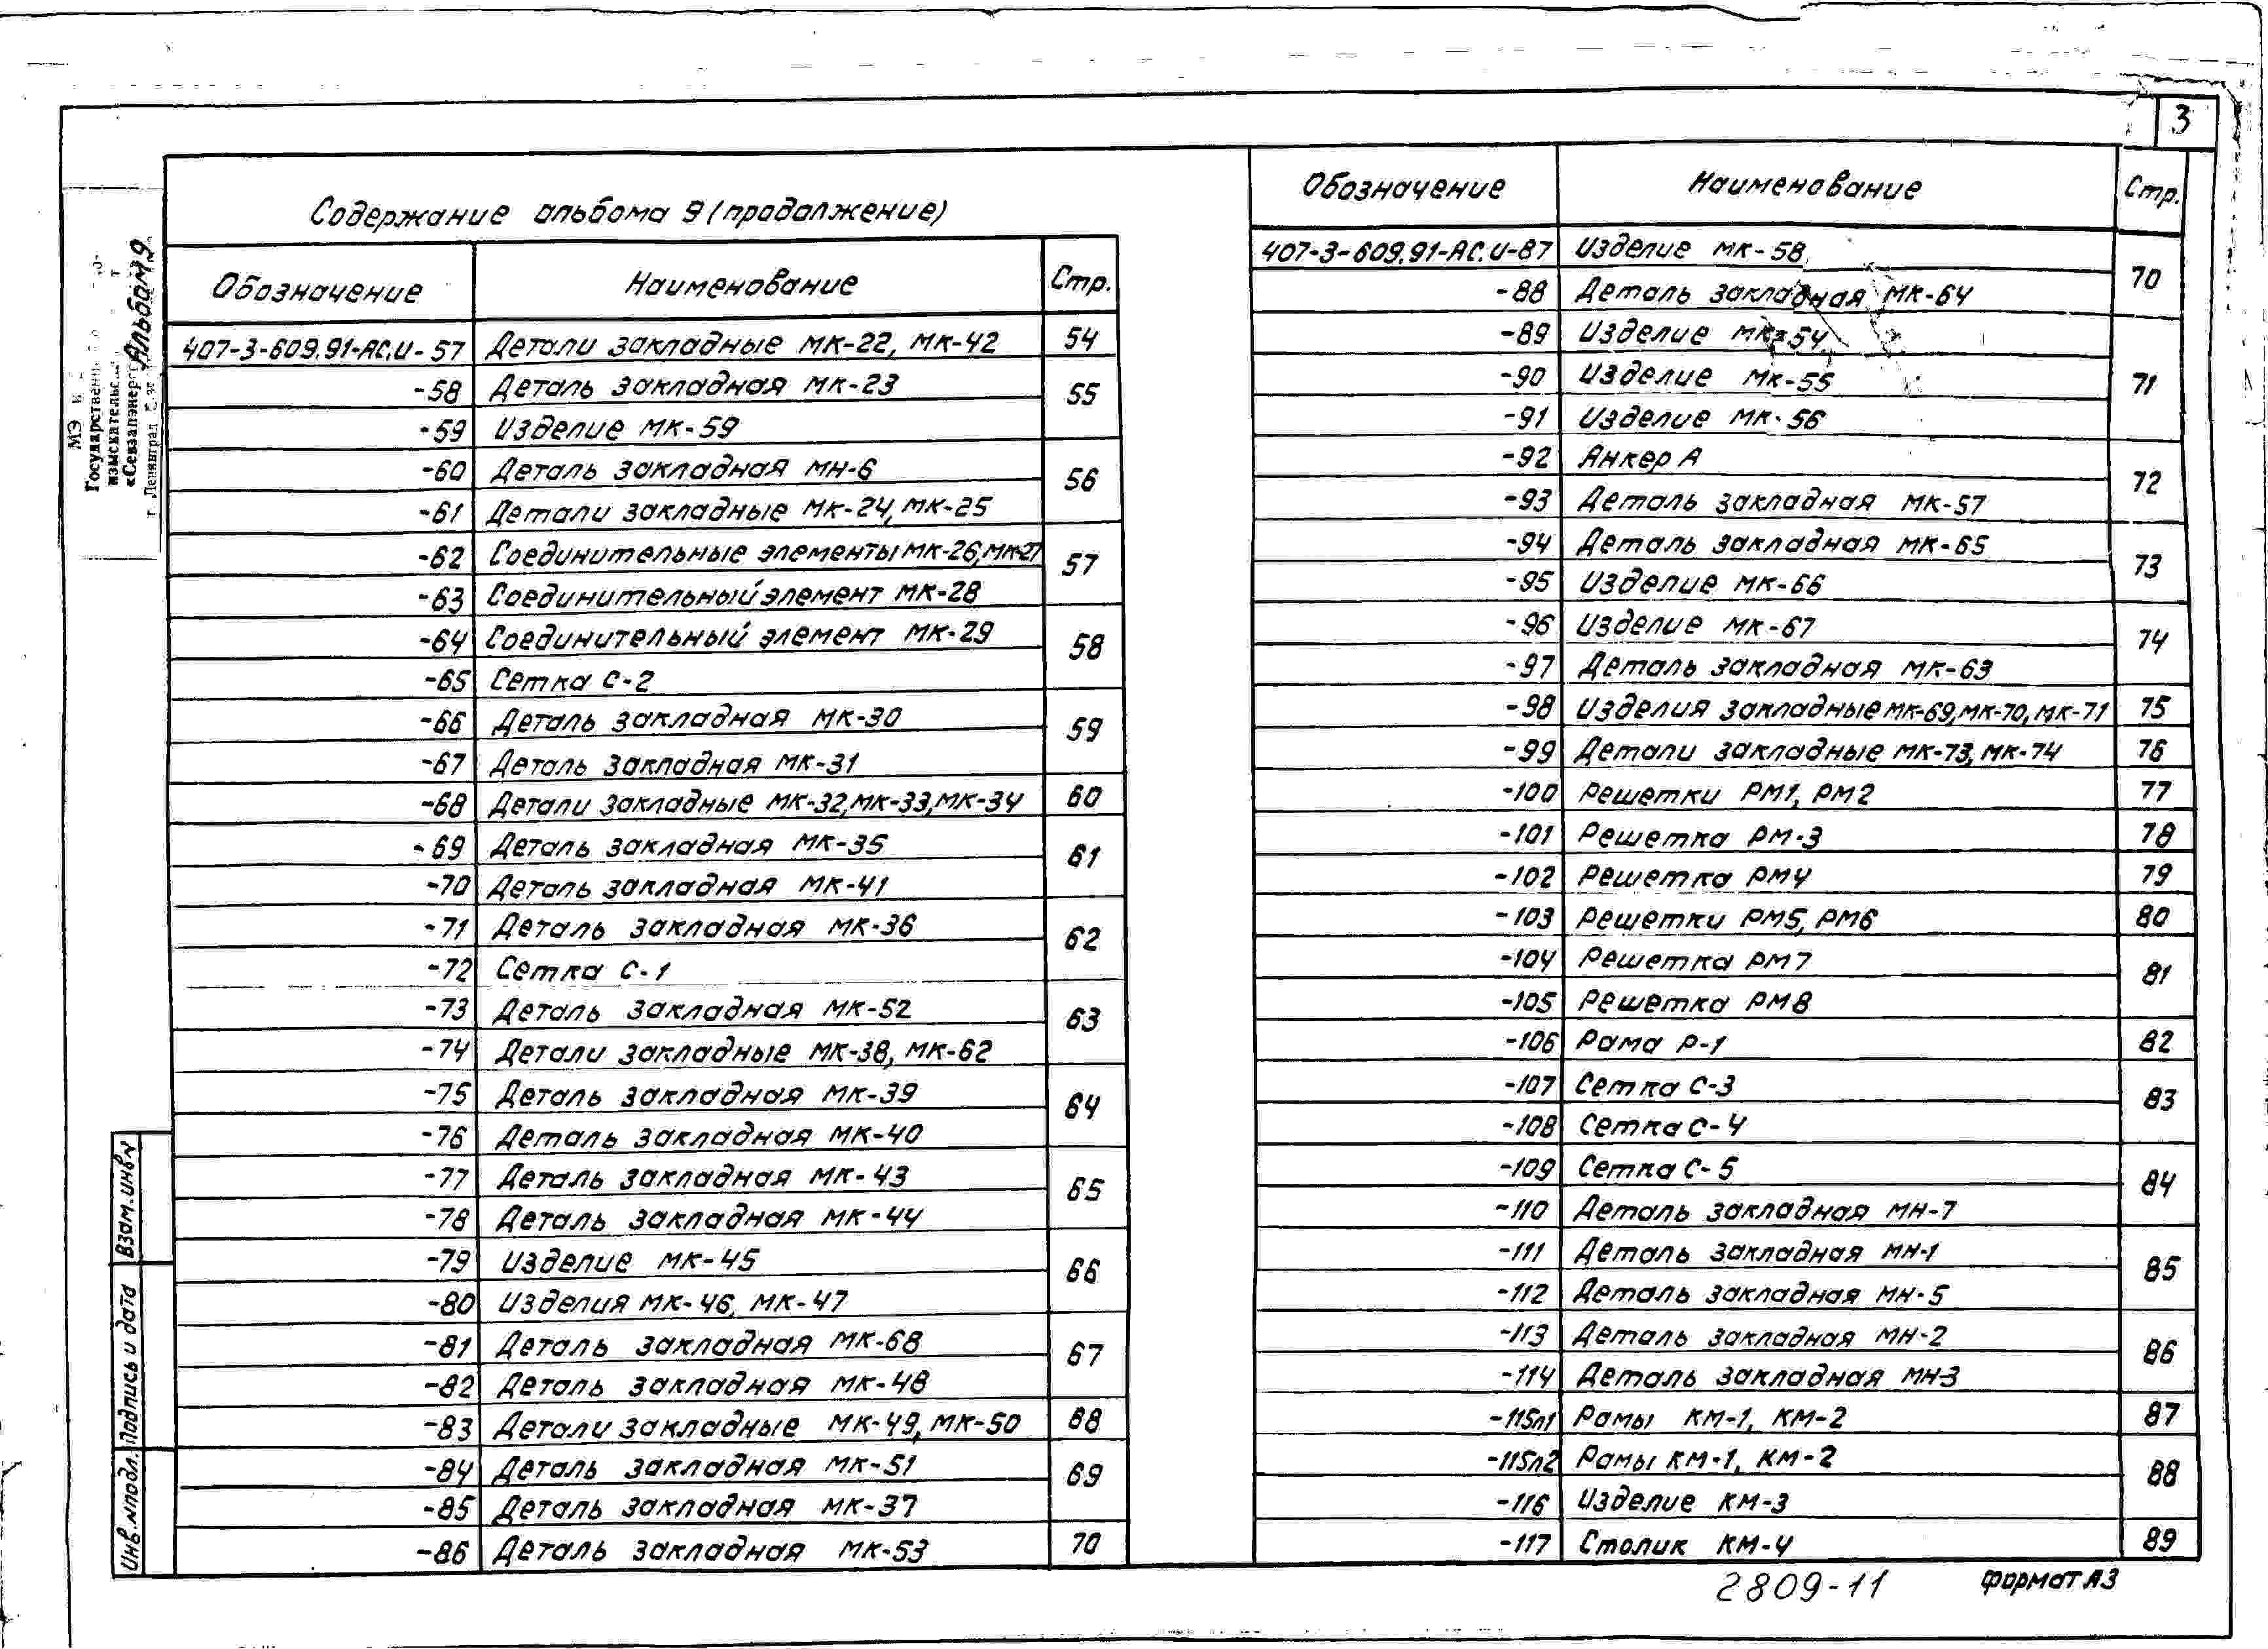 3
Содержание альбома 9 (продолжение)
Обозначение Наименование Стр.
407-3-609.91-АС.И-57 Детали закладные МК-22, МК-42 54
-58 Деталь закладная МК-23 55
-59 Изделие МК-59
-60 Деталь закладная МН-6 56
-61 Детали закладные МК-24, МК-25
-62 Соединительные элементы МК-26, МК-27 57
-63 Соединительный элемент МК-28
-64 Соединительный элемент МК-29 58
-65 Сетка С-2
-66 Деталь закладная МК-30 59
-67 Деталь закладная МК-31
-68 Детали закладные МК-32, МК-33, МК-34 60
-69 Деталь закладная МК-35 61
-70 Деталь закладная МК-41
-71 Деталь закладная МК-36 62
-72 Сетка С-1
-73 Деталь закладная МК-52 63
-74 Детали закладные МК-38, МК-62
-75 Деталь закладная МК-39 64
-76 Деталь закладная МК-40
-77 Деталь закладная МК-43 65
-78 Деталь закладная МК-44
-79 Изделие МК-45 66
-80 Изделия МК-46, МК-47
-81 Деталь закладная МК-68 67
-82 Деталь закладная МК-48
-83 Детали закладные МК-49, МК-50 68
-84 Деталь закладная МК-51 69
-85 Деталь закладная МК-37
-86 Деталь закладная МК-53 70
Обозначение Наименование Стр.
407-3-609.91-АС.И-87 Изделие МК-58 70
-88 Деталь закладная МК-64
-89 Изделие МК-54 71
-90 Изделие МК-55
-91 Изделие МК-56
-92 Анкер А 72
-93 Деталь закладная МК-57
-94 Деталь закладная МК-65 73
-95 Изделие МК-66
-96 Изделие МК-67 74
-97 Деталь закладная МК-63
-98 Изделия закладные МК-69, МК-70, МК-71 75
-99 Детали закладные МК-73, МК-74 76
-100 Решетки РМ1, РМ2 77
-101 Решетка РМ-3 78
-102 Решетка РМ4 79
-103 Решетки РМ5, РМ6 80
-104 Решетка РМ7 81
-105 Решетка РМ8
-106 Рама Р-1 82
-107 Сетка С-3 83
-108 Сетка С-4
-109 Сетка С-5 84
-110 Деталь закладная МН-7
-111 Деталь закладная МН-1 85
-112 Деталь закладная МН-5
-113 Деталь закладная МН-2 86
-114 Деталь закладная МН-3
-115л1 Рамы КМ-1, КМ-2 87
-115л2 Рамы КМ-1, КМ-2 88
-116 Изделие КМ-3
-117 Столик КМ-4 89
2809-11 Формат А3
МЭ
Государственн
изыскательс
«Севзапэнерг
г. Ленинград
Альбом 9
Взам.инв№
Подпись и дата
Инв.№подл.